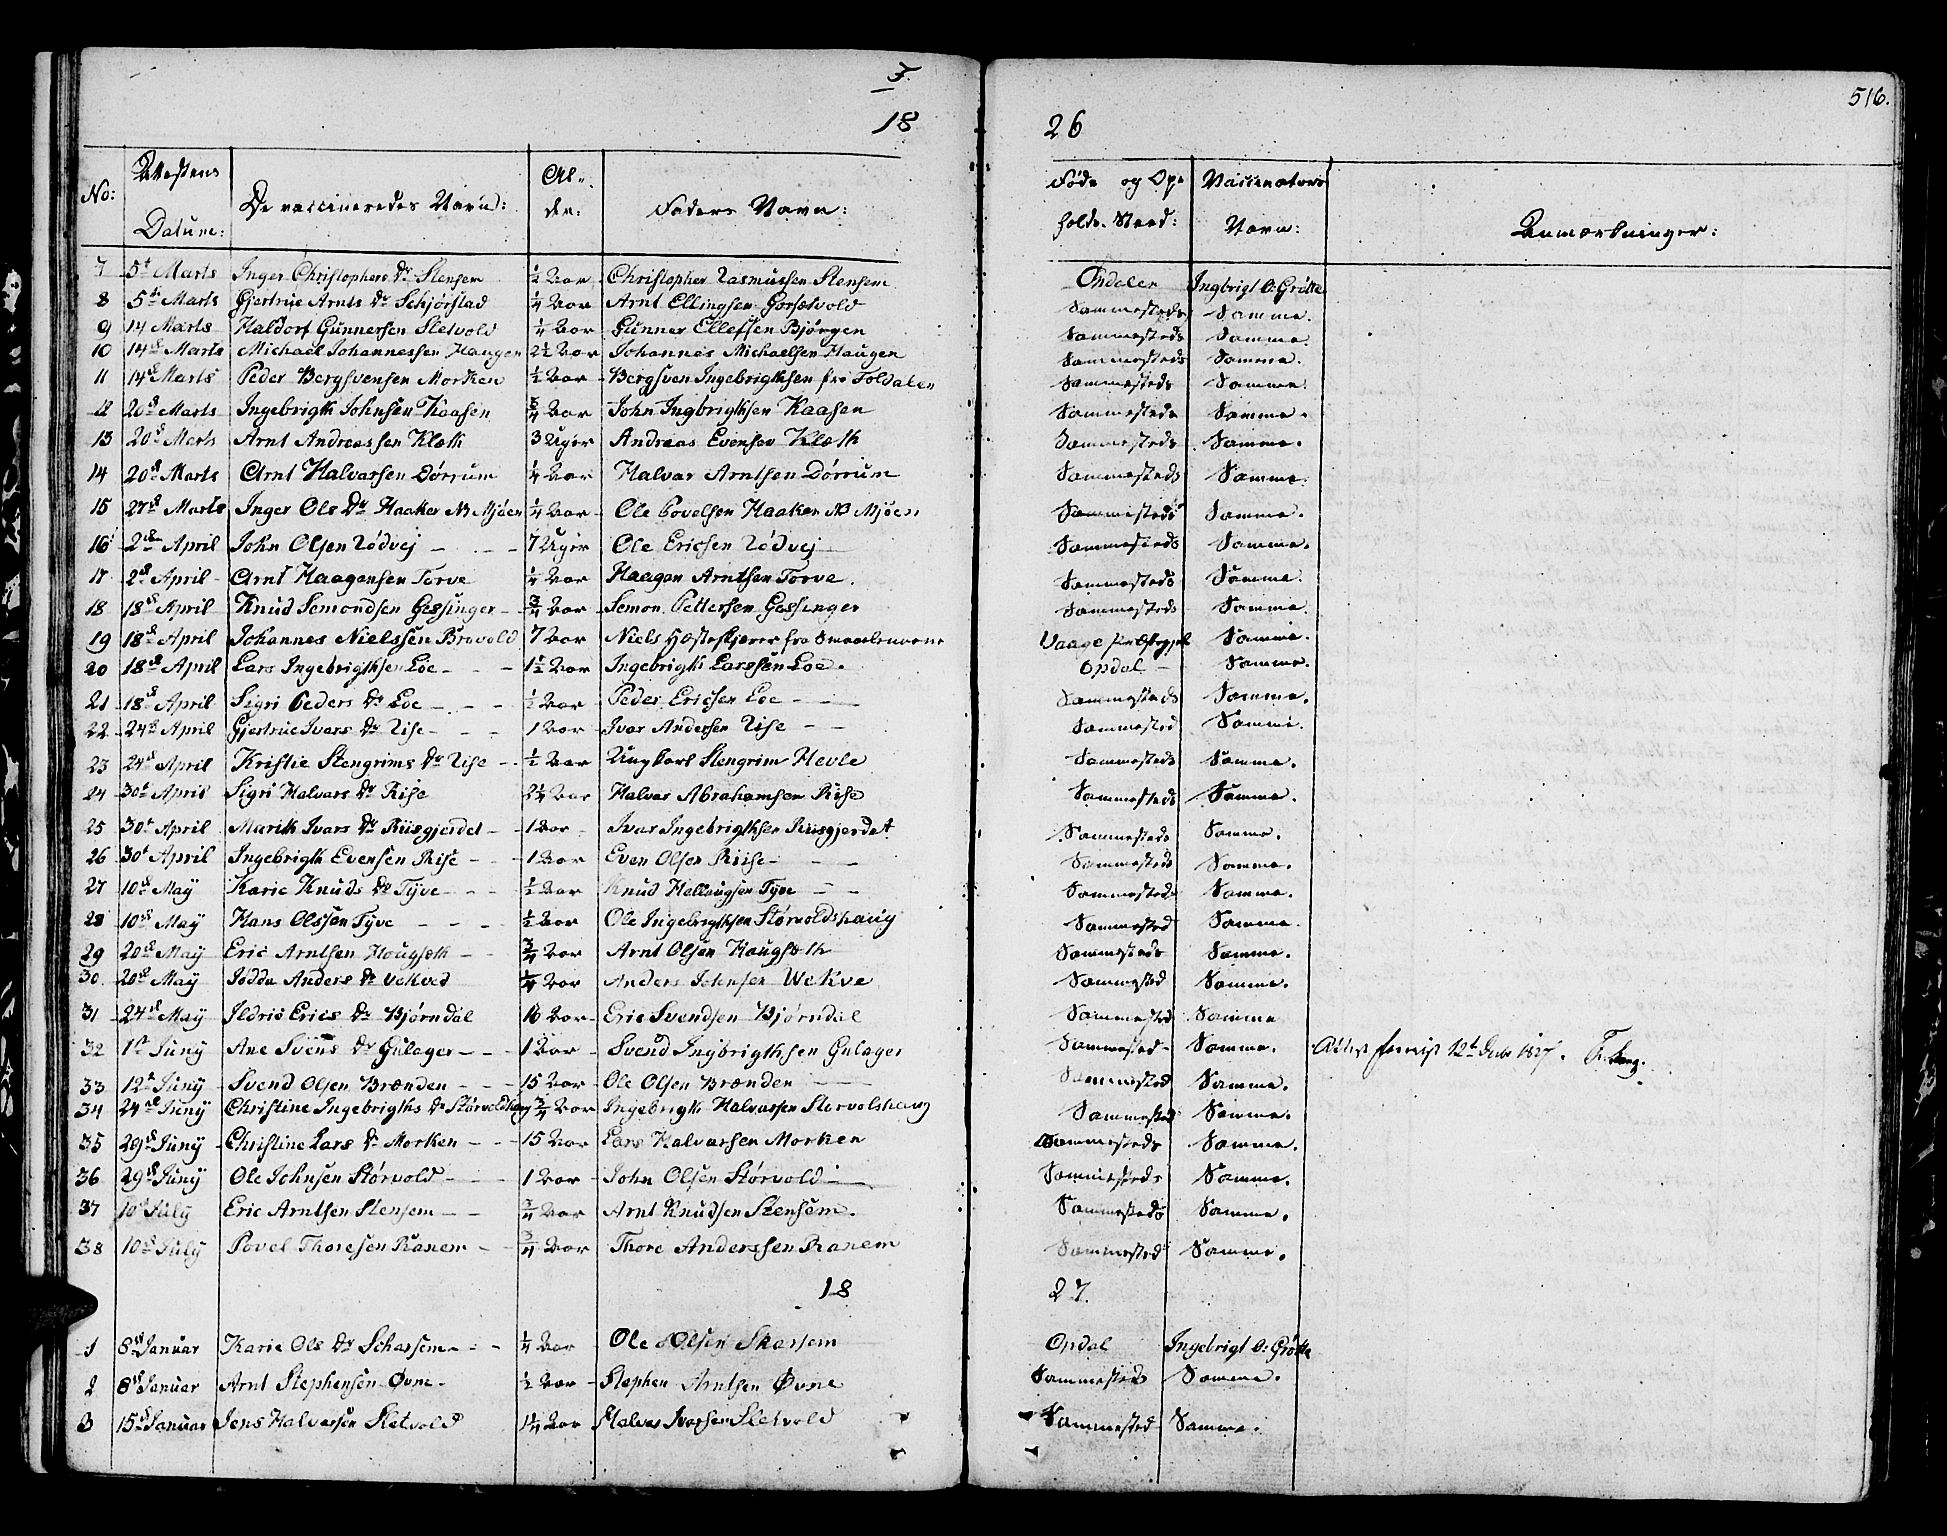 516.
18 26
No: Attestens Datum: De vaccineredes Navn: Al- der: Faders Navn: Føde og Op- holds Sted: Vaccinateurs Navn: Anmærkninger:
7 5t Marts Inger Christophers Dr Stensem ½ Aar Christopher Rasmussen Stensem Opdalen Ingbrigt O: Grötte
8 5te Marts Gjertrue Arnts Dr Schjørstad ¼ Aar Arnt Ellingsen Gorsetvold Sammesteds Samme.
9 14 Marts Haldor Gunnersen Sletvold ¼ Aar Gunner Ellefsen Bjørgen Sammesteds Samme.
10 14de Marts Michael Johannessen Haugen 2½ Aar Johannes Michaelsen Haugen Sammesteds Samme.
11 14de Marts Peder Bergsvensen Morken ½ Aar Bergsven Ingebrigthsen fra Foldalen Sammesteds Samme.
12 20de Marts Ingebrigth Johnsen Kaasen ¾ Aar John Ingbrigthsen Kaasen Sammesteds Samme.
13 20de Marts Arnt Andreassen Klæth 3 Uger Andreas Evensen Klæth Sammesteds Samme.
14 20de Marts Arnt Halvarsen Dørrum ¼ Aar Halvar Arntsen Dørrum Sammesteds Samme.
15 27de Marts Inger Ols Dr Haaker NB Mjøen ¼ Aar Ole Povelsen Haaker NB Mjøen Sammesteds Samme.
16 2den April John Olsen Rödvej 7 Uger Ole Ericsen Rödvej Sammesteds Samme.
17 2de April Arnt Haagensen Torve ¼ Aar Haagen Arntsen Torve. Sammesteds Samme.
18 18de April Knud Semondsen Gessinger ¾ Aar Semon Pettersen Gessinger Sammesteds Samme.
19 18de April Johannes Nielssen Bravold 7 Aar Niels Hesteskjærer fra Smaalennene Vaage Samme.
20 18de April Lars Ingebrigthsen Loe 1½ Aar Ingebrigth Larssen Loe. Opdal Samme.
21 18de April Sigri Peders Dr Loe ½ Aar Peder Ericsen Loe Sammesteds Samme.
22 24de April Gjertrue Ivers Dr Rise 1 Aar Ivar Andersen Rise Sammested Samme.
23 24de April Kristie Stengrims Dr Rise ½ Aar Ungkarl Stengrim Hevle Sammesteds Samme.
24 30t April Sigri Halvars Dr Rise 2¼ Aar Halvar Abrahamsen Rise Sammesteds Samme.
25 30t April Marith Ivars Dr Riisgjerdet 1 Aar Ivar Ingebrigthsen Riisgjerdet Sammesteds Samme.
26 30t April Ingebrigth Evensen Rise 1 Aar Even Olsen Riise Sammesteds Samme.
27 10de May Karie Knuds Dr Tyve ½ Aar Knud Hallaugsen Tyve Sammesteds Samme.
28 10de May Hans Olssen Tyve ½ Aar Ole Ingebrigthsen Størvoldshaug Sammested Samme.
29 20de May Eric Arntsen Haugseth ¾ Aar Arnt Olsen Haugseth Sammesteds Samme.
30. 20de May Jødda Anders Dr Vekved ¼ Aar Anders Johnsen Wekve Sammested Samme.
31 24de May Ildrie Erics Dr Bjørndal 10 Aar Eric Svendsen Bjørndal Sammested Samme
32 1te Juny Ane Svens Dr Gulager 1 Aar Svend Ingbrigthsen Gulager Sammested Samme. 12t 1827.
33 12t Juny Svend Olsen Brænden 15 Aar Ole Olsen Brænden Sammested Samme.
34 24de Juny Christine Ingebrigths Dr Størvoldhaug ¾ Aar Ingebrigth Halvarsen Storvolshaug Sammested Samme.
35 29de Juny Christine Lars Dr Morken 15 Aar Lars Halvarsen Morken Sammesteds Samme.
36 29de Juny Ole Johnsen Størvold 1 Aar John Olsen Størvold Sammesteds Samme.
37 10de July Eric Arntsen Stensem ¾ Aar Arnt Knudsen Stensem. Sammesteds Samme.
38 10de July Povel Thoresen Ranem ¾ Aar Thore Anderssen Ranem Sammested Samme.
18 27.
1 8de Januar Karie Ols Dr Scharsem ¼ Aar Ole Olsen Skarsem Opdal Ingebrigt O: Grötte
2 8de Januar Arnt Stephensen Øvne ½ Aar Stephen Arntsen Øvne Sammesteds Samme.
3 15de Januar Jens Halvarsen Sletvold 1¼ Aar Halvar Ivarsen Sletvold Sammested Samme.